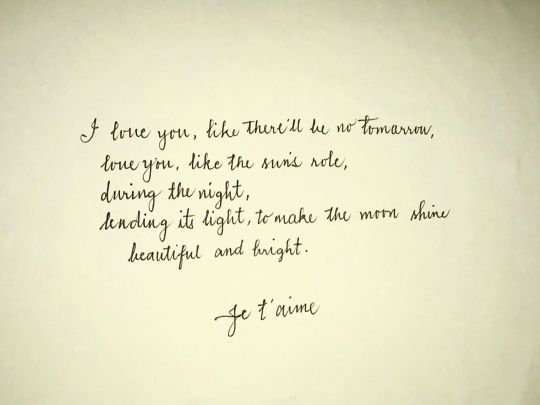 I love you, like there'll be no tomarrow,
love you, like the sun's role,
during the night,
lending its light, to make the moon shine
beautiful and bright.
Je t'aime